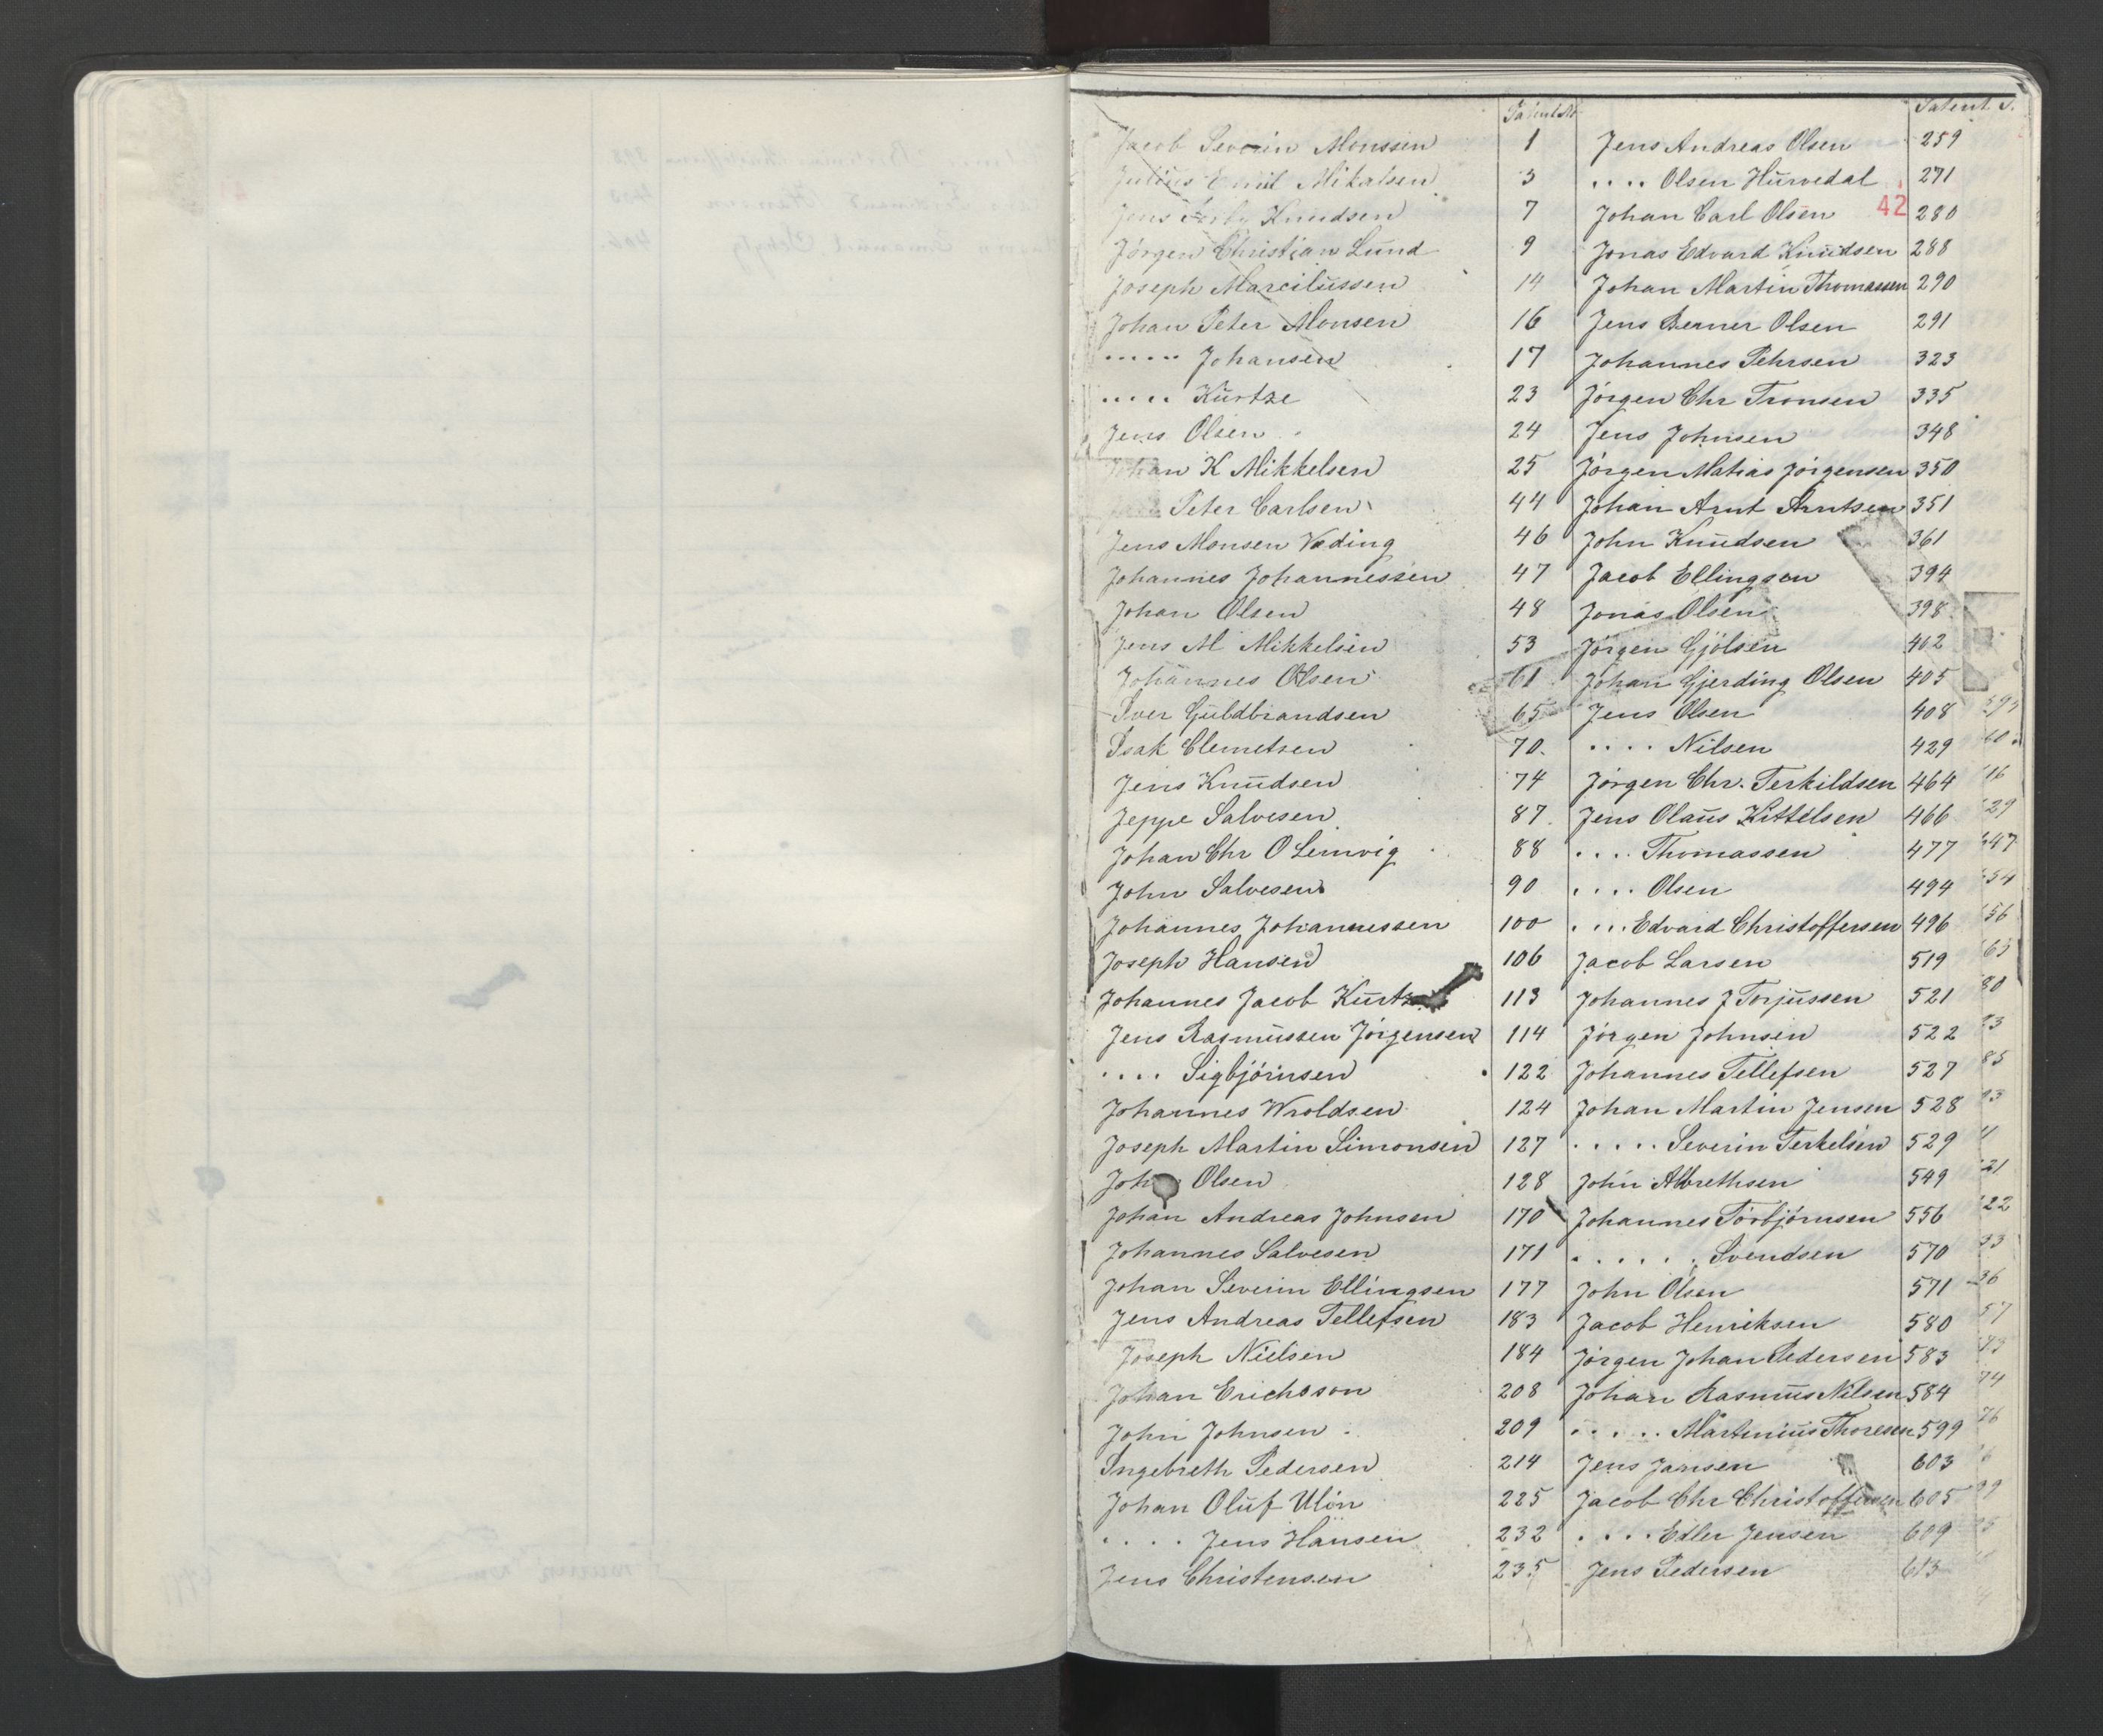 Patent No
Patent
Jacob Severin Monssen 1 Jens Andreas Olsen 259
Julius Emil Mikalsen 3 .... Olsen Hurvedal 271
Jens Knudsen 7 Johan Carl Olsen 42 280
Jørgen Christian Lund 9 Jonas Edvard Knudsen 288
Joseph Marcilussen 14 Johan Martin Thomassen 290
Johan Peter Monsen 16 Jens Berner Olsen 291
...... Johansen 17 Johannes Pehrsen 323
..... Kurtze 23 Jørgen Chr Tronsen 335
Jens Olsen 24 Jens Johnsen 348
Johan K Mikkelsen 25 Jørgen Matias Jørgensen 350
Peter Carlsen 44 Johan Arnt Arntsen 351
Jens Monsen Væding 46 John Knudsen 361
Johannes Johannessen 47 Jacob Ellingsen 394
Johan Olsen 48 Jonas Olsen 398
Jens M Mikkelsen 53 Jørgen Gjølsen 402
Johannes Olsen 61 Johan Gjerding Olsen 405
Iver Guldbrandsen 65 Jens Olsen 408
Isak Clemetsen 70. .... Nilsen 429
Jens Knudsen 74 Jørgen Chr. Terkildsen 464 16
Jeppe Salvesen 87. Jens Olaus Kittelsen 466 29
Johan Chr O Lemvig 88 .... Thomassen 477 47
John Salvesen 90 .... Olsen 494 54
Johannes Johannessen 100 .... Edvard Christoffersen 496 56
Joseph Hansen 106 Jacob Larsen 519 63
Johannes Jacob Kurtz 113 Johannes J Torjussen 521 80
Jens Rasmussen Jørgensen 114 Jørgen Johnsen 522
.... Sigbjørnsen 122 Johannes Tellefsen 527 85
Johannes Wroldsen 124 Johan Martin Jensen 528
Joseph Martin Simonsen 127 ..... Severin Terkelsen 529
Joh Olsen 128 John Albrethsen 549 21
Johan Andreas Johnsen 170 Johannes Torbjørnsen 556 22
Johannes Salvesen 171 ...... Svendsen 570
Johan Severin Ellingsen 177 John Olsen 571 36
Jens Andreas Tellefsen 183 Jacob Henriksen 580 57
Joseph Nielsen 184 Jørgen Johan Pedersen 583
Johan Erichsson 208 Johan Rasmus Nilsen 584 74
John Johnsen 209 ..... Martinius Thoresen 599 76
Ingebreth Pedersen 214 Jens Jansen 603
Johan Oluf Ulön 225 Jacob Chr Christoffersen 605
.... Jens Hansen 232 .... Edler Jensen 609
Jens Christensen 235 Jens Pedersen 613